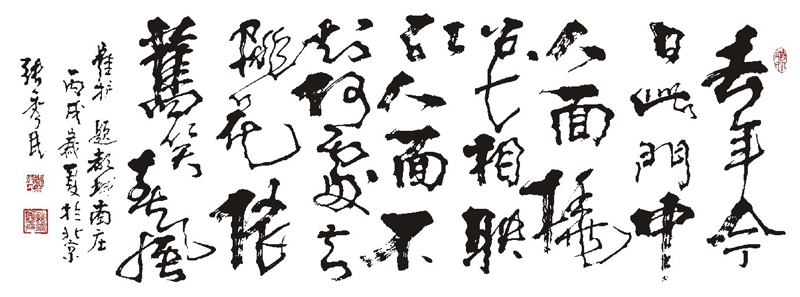 去年今
日此門中
人面桃
花相映
红人面不
知何處去
桃花依
舊笑春風
崔护题都城南庄
丙戌歲夏於北京
张秀民